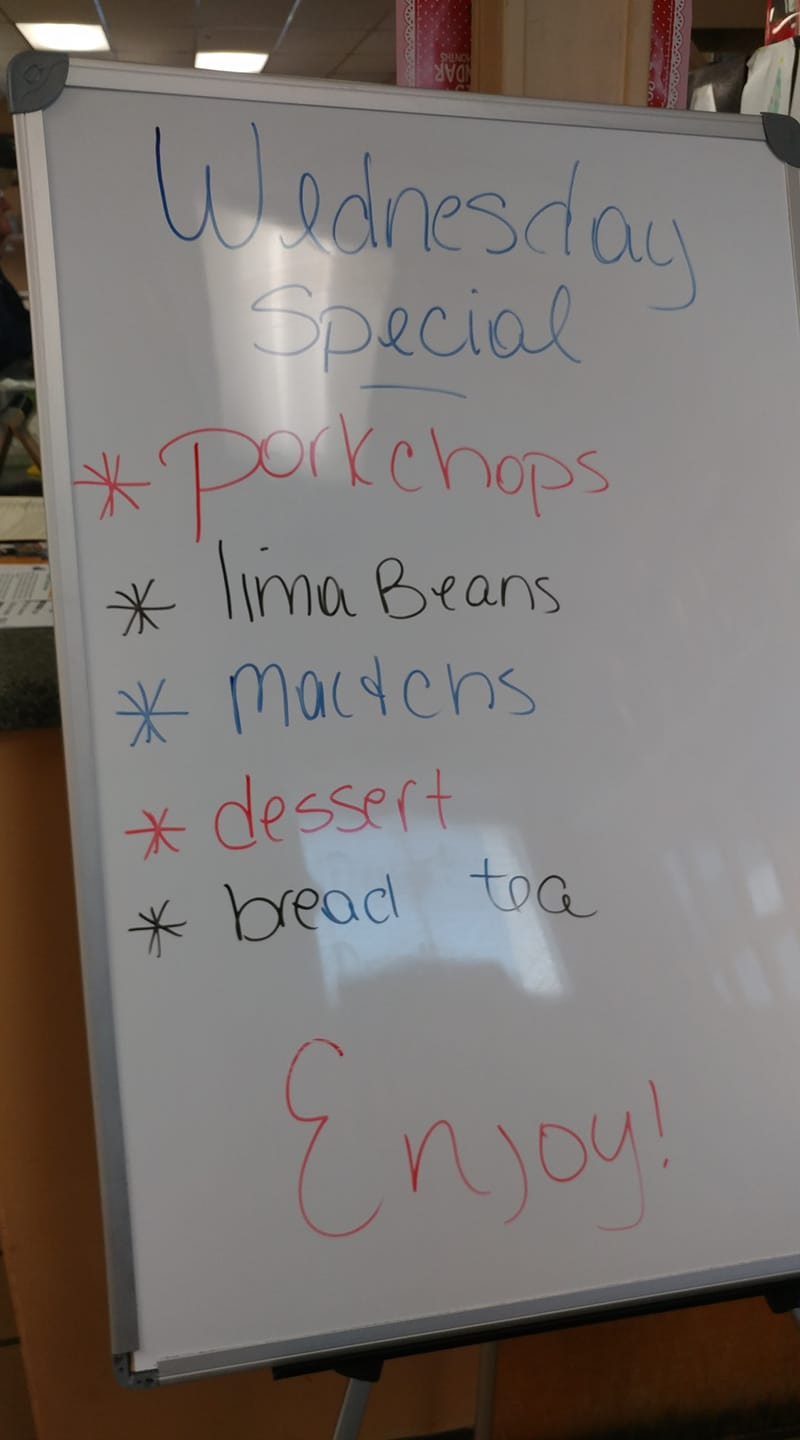 Wednesday
Special
* porkchops
* lima Beans
* mac & chs
* dessert
* bread tea
Enjoy!